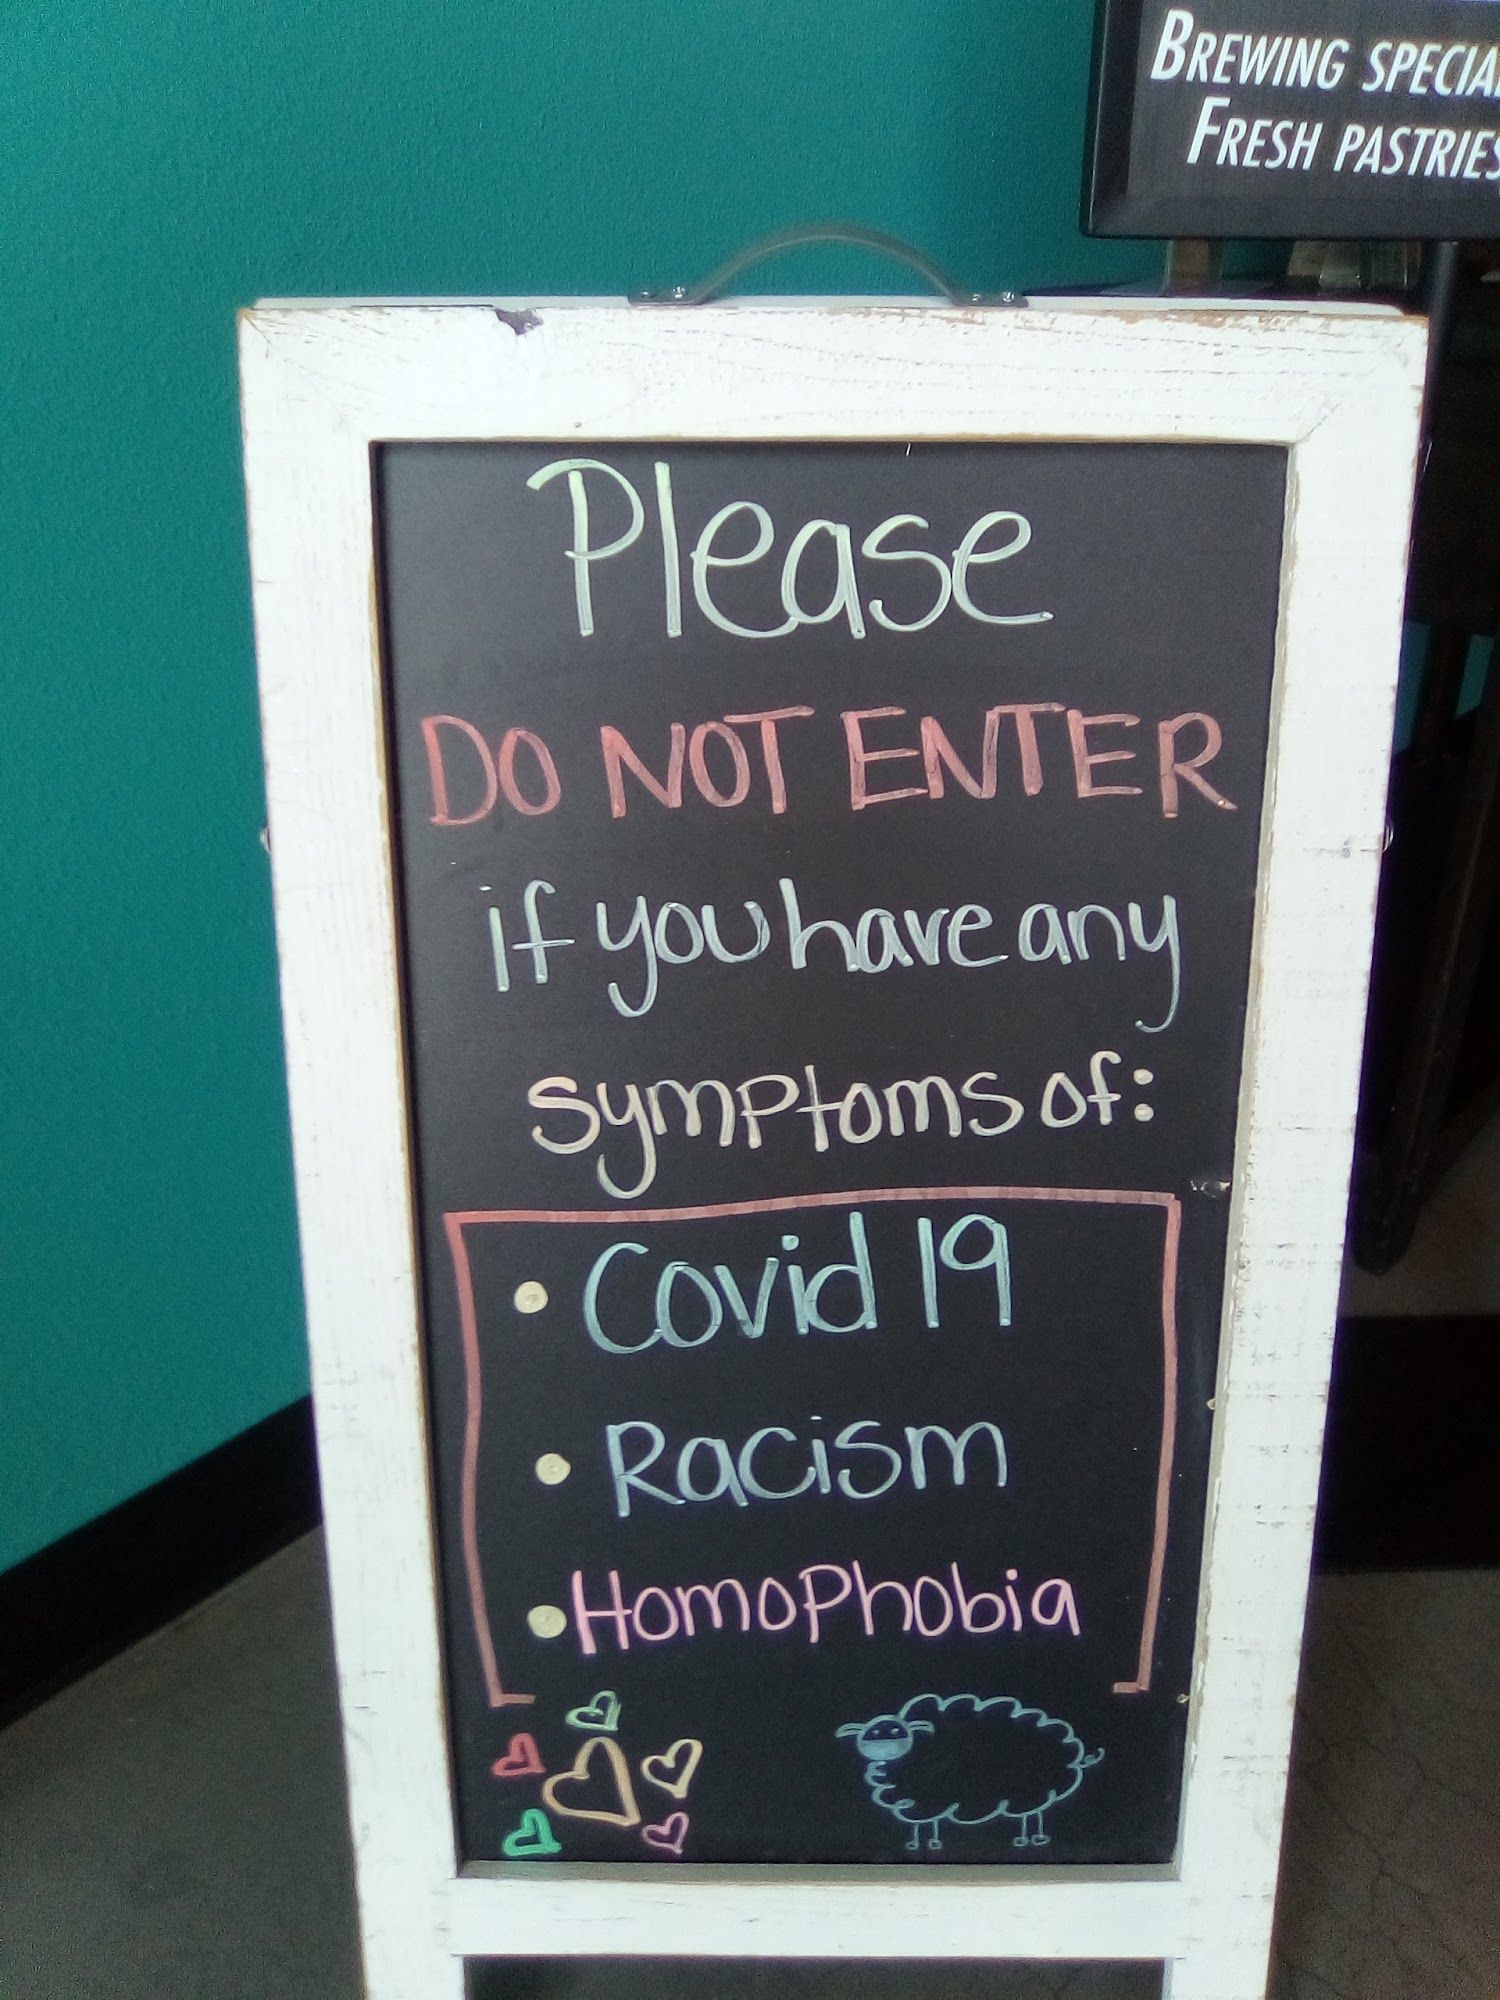 BREWING SPECIA
FRESH PASTRIES
Please
DO NOT ENTER
if you have any
symptoms of:
• Covid 19
• Racism
• Homophobia